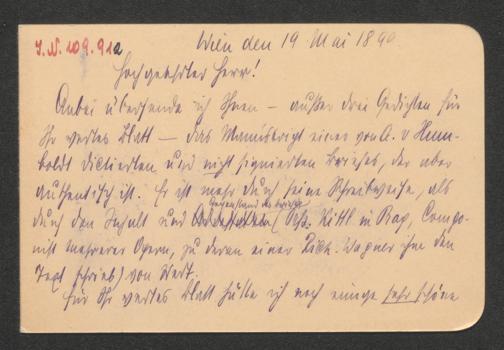 J.N. 109.912
Wien den 19 Mai 1890
Hochgeehrter Herr!
Anbei übersende ich Ihnen – außer drei Gedichten für
Ihr wertes Blatt – das Manuskript eines von A. v Hum-
boldt dictierten und nicht signierten Briefes, der aber
authentisch ist. Er ist mehr durch seine Schreibweise, als
Gegenstand des Briefes
durch den Inhalt und (Joh. Kittl in Prag, Compo-
nist mehrerer Opern, zu deren einer Rich. Wagner ihm den
Text schrieb) von Wert.
Für Ihr wertes Blatt hätte ich noch einige sehr schöne